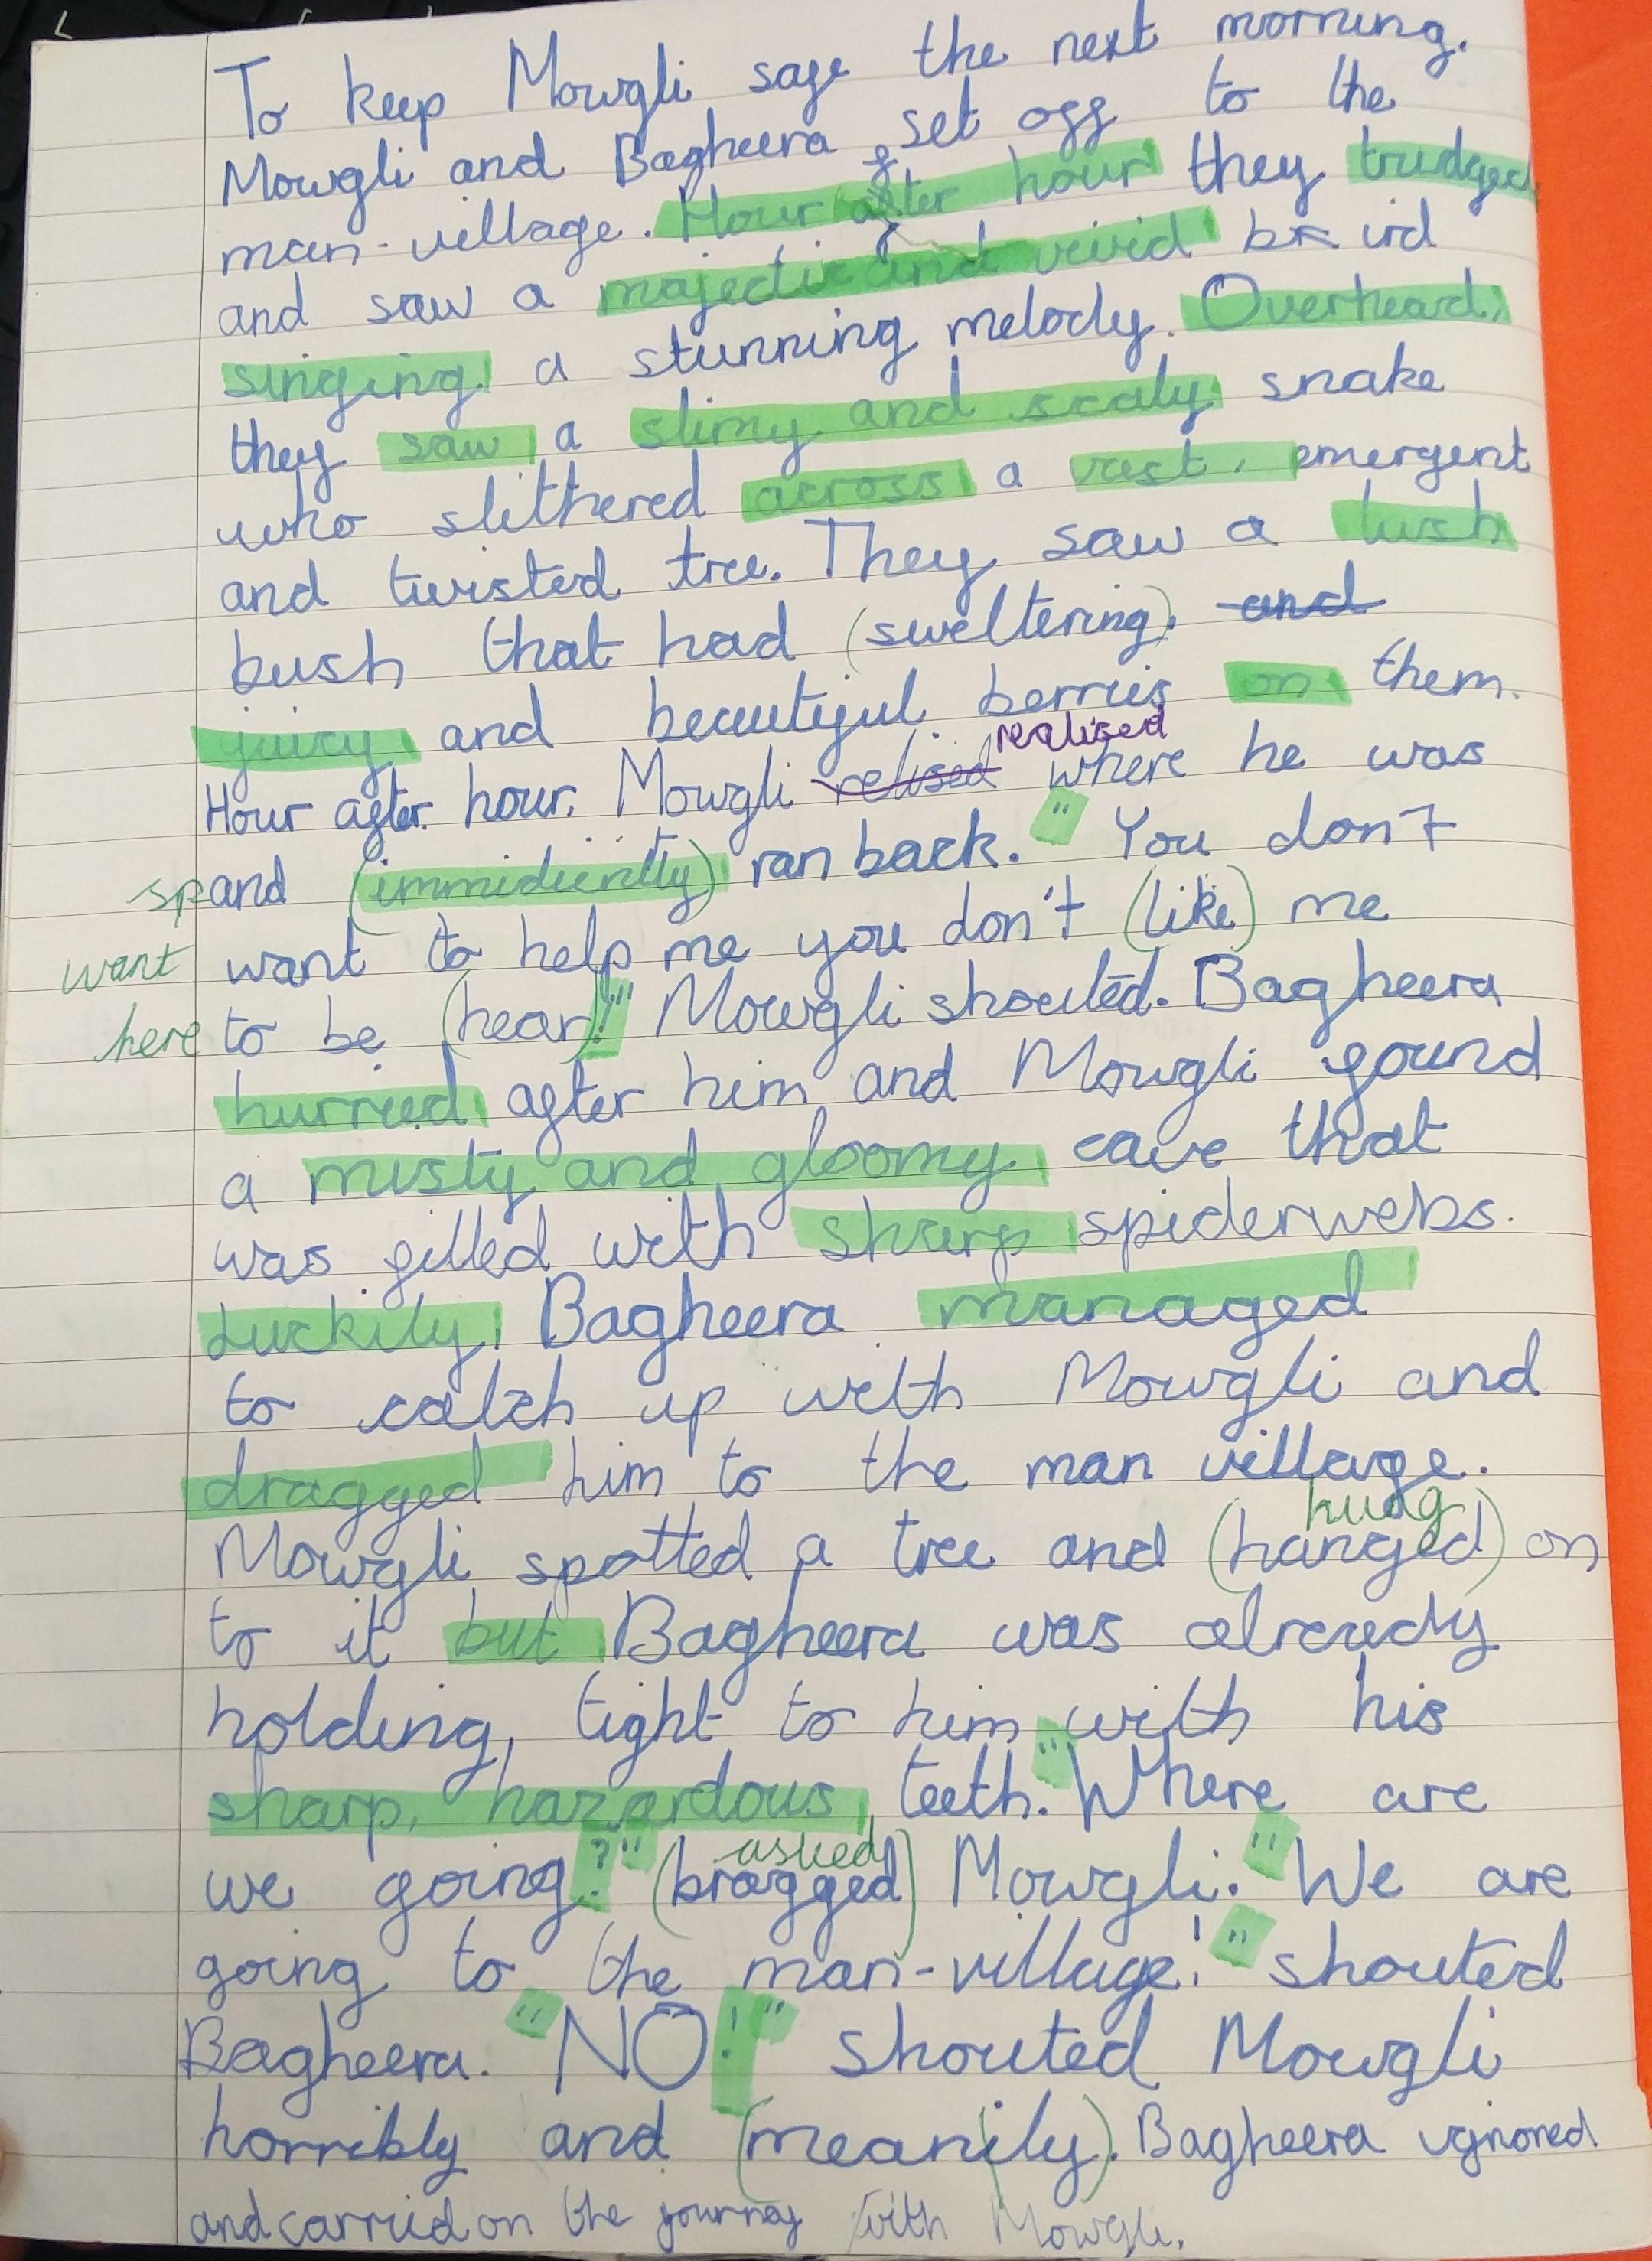 To keep Mowgli safe the next morning.
Mowgli and Bagheera set off to the
man-village. Hour after hour they trudged
and saw a majectic and vivid bird
singing a stunning melody. Overheard,
they saw a slimy and scaly snake
who slithered across a vast, emergent
and twisted tree. They saw a lush
bush that had (sweltering), and
juicy, and beautiful berries on them.
realised
Hour after hour, Mowgli relised where he was
sp and (immidiently) ran back. "You don't
want want to help me you don't (like) me
here to be (hear)!" Mowgli shouted. Bagheera
hurried after him and Mowgli found
a misty and gloomy cave that
was filled with sharp spiderwebs.
Luckily, Bagheera managed
to catch up with Mowgli and
dragged him to the man village.
hung
Mowgli spotted a tree and (hanged) on
to it but Bagheera was already
holding, tight to him with his
sharp, hazardous, teeth. "Where are
asked
we going?" (bragged) Mowgli. "We are
going to the man-village!" shouted
Bagheera. "NO!" shouted Mowgli
horribly and (meanily). Bagheera ignored
and carried on the journey with Mowgli.